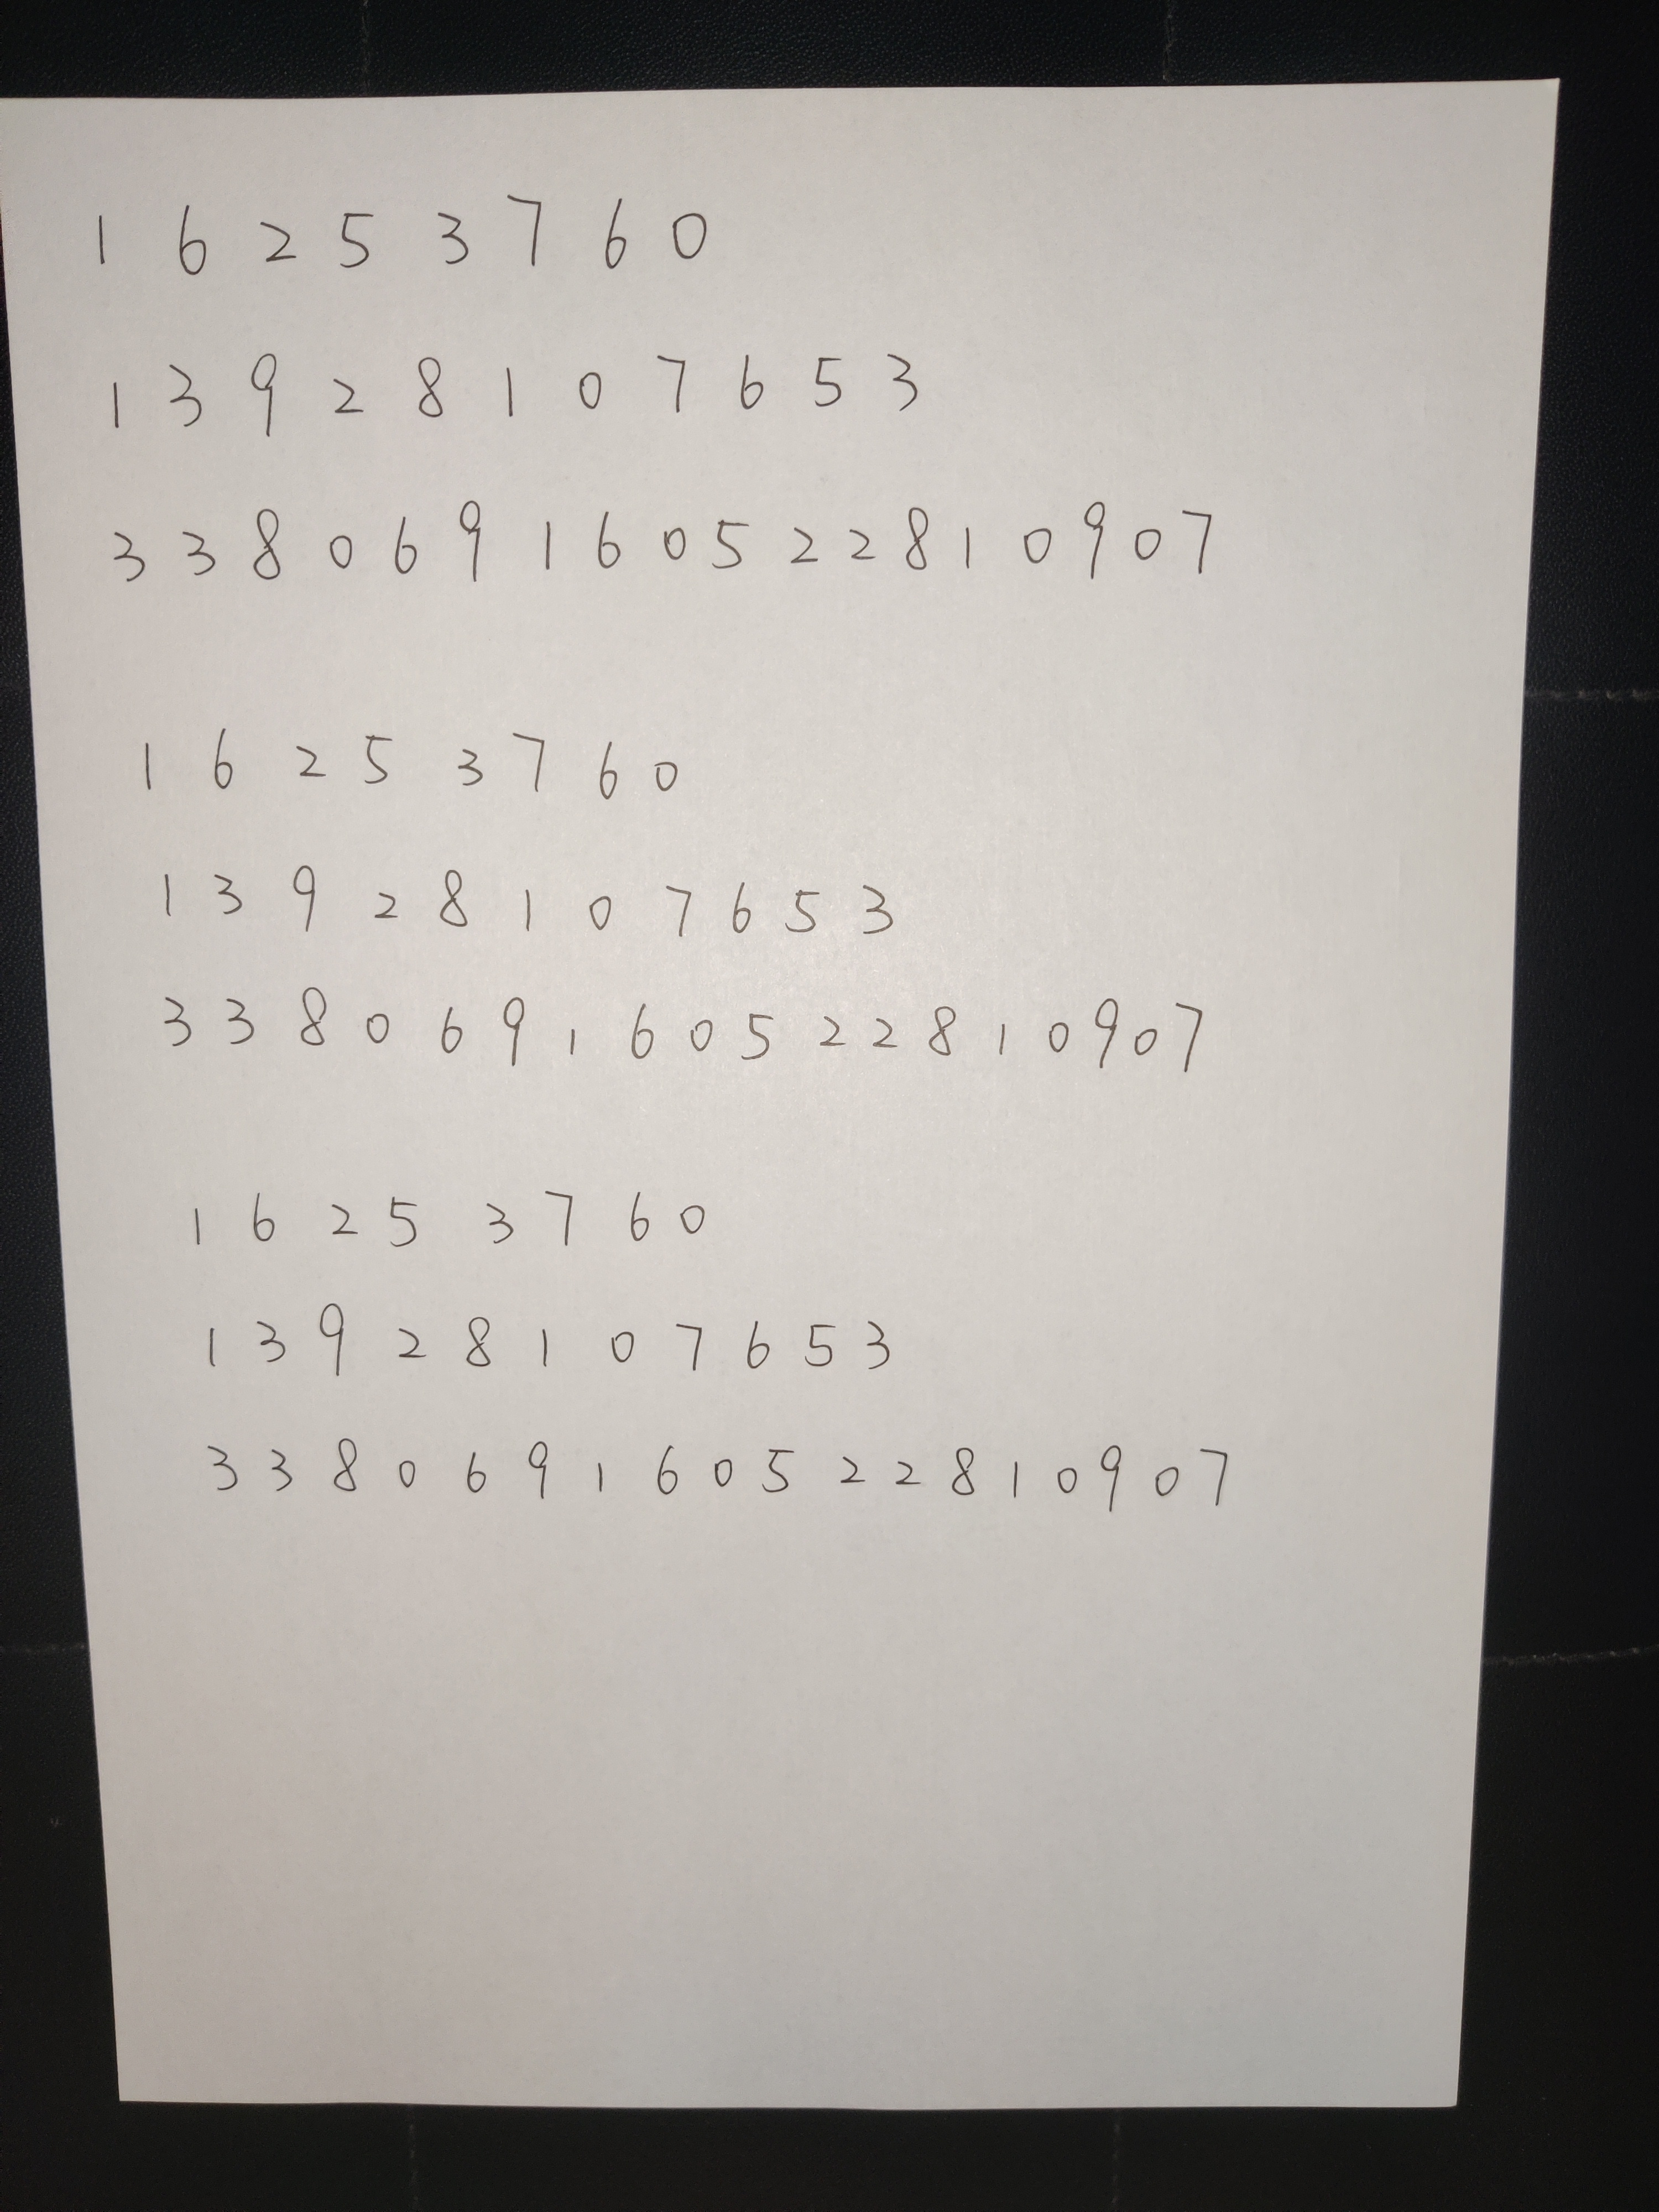 1 6 2 5 3 7 6 0
1 3 9 2 8 1 0 7 6 5 3
3 3 8 0 6 9 1 6 0 5 2 2 8 1 0 9 0 7
1 6 2 5 3 7 6 0
1 3 9 2 8 1 0 7 6 5 3
3 3 8 0 6 9 1 6 0 5 2 2 8 1 0 9 0 7
1 6 2 5 3 7 6 0
1 3 9 2 8 1 0 7 6 5 3
3 3 8 0 6 9 1 6 0 5 2 2 8 1 0 9 0 7